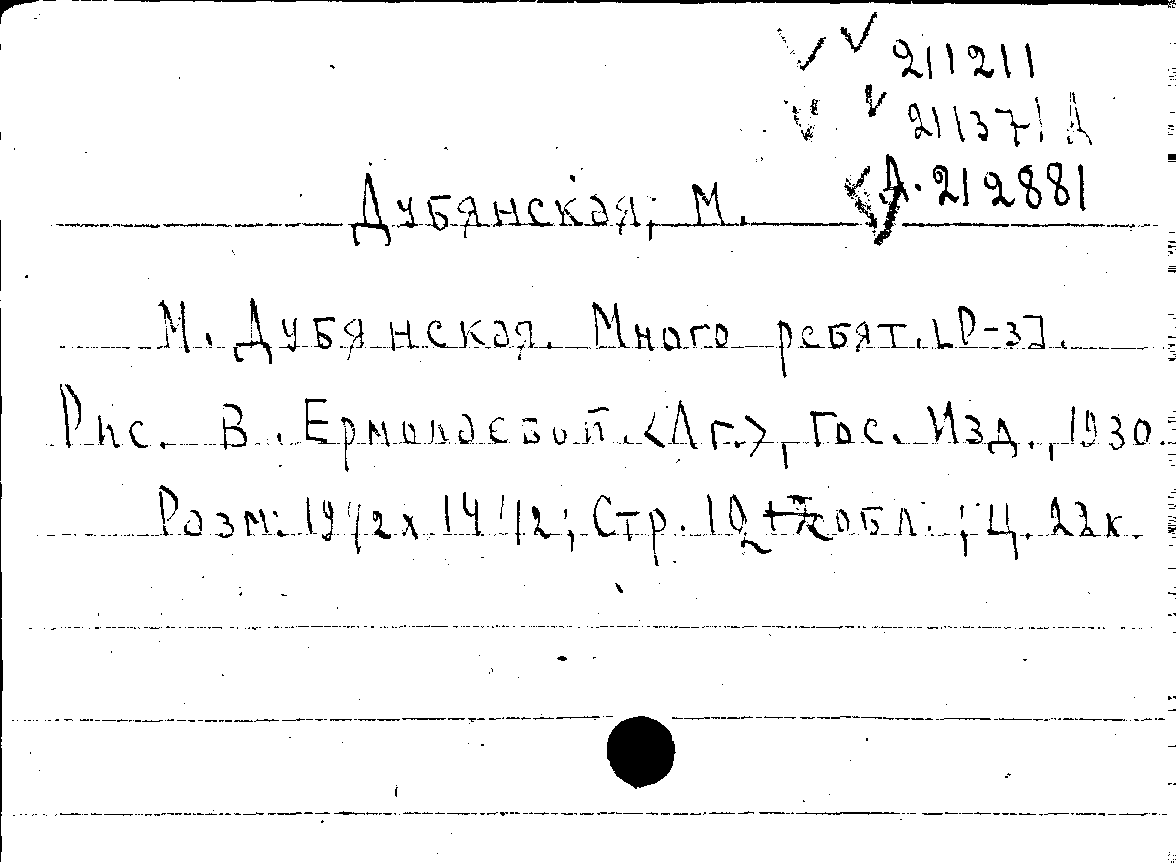 211211
211371 А
А. 212881
Дубянская, М.
М. Дубянская. Много ребят. [Р-з].
Рис. В. Ермолаевой. <Лг.>, Гос. Изд., 1930.
Разм: 19 1/2 х 14 1/2; Стр. 10 обл.; Ц. 22к.